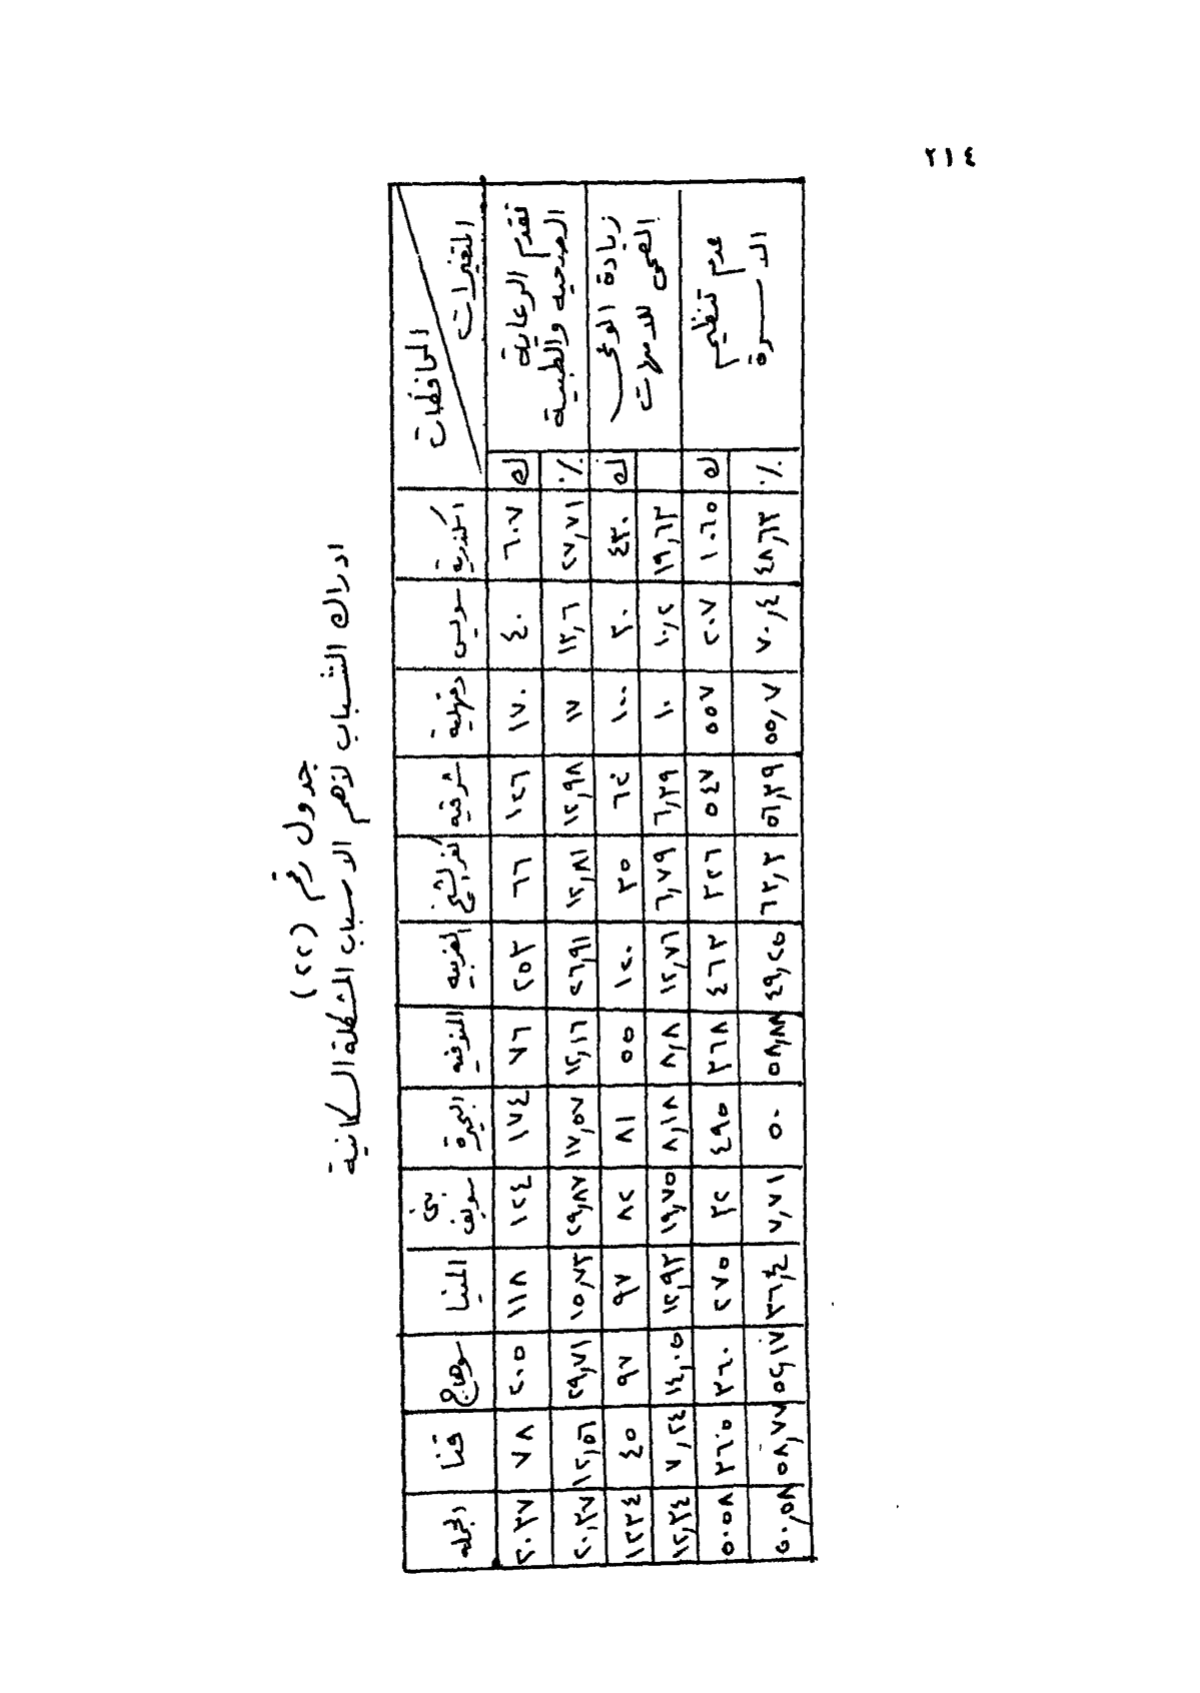 ٢١٤
جدول رقم (٢٢)
ادراك الشباب لأهم الاسباب المشكلة السكانية
المتغيرات المحافظات اسكندرية سويس دقهلية شرقيه كفر الشيخ الغربيه المنوفيه البحيرة بنى سويف المنيا سوهاج قنا الجمله
تقدم الرعاية الصحيه والطبية ك ٦٠٧ ٤٠ ١٧٠ ١٢٦ ٦٦ ٢٥٣ ٧٦ ١٧٤ ١٢٤ ١١٨ ٢٠٥ ٧٨ ٢٠٣٧
٪ ٢٧,٧١ ١٣,٦ ١٧ ١٢,٩٨ ١٢,٨١ ٢٦,٩١ ١٢,١٦ ١٧,٥٧ ٢٩,٨٧ ١٥,٧٣ ٢٩,٧١ ١٢,٥٦ ٢٠,٣٧
زيادة الوعى الصحى للامهات ك ٤٣٠ ٣٠ ١٠٠ ٦٢ ٣٥ ١٢٠ ٥٥ ٨١ ٨٢ ٩٧ ٩٧ ٤٥ ١٢٣٤
١٩,٦٣ ١٠,٢ ١٠ ٦,٣٩ ٦,٧٩ ١٢,٧٦ ٨,٨ ٨,١٨ ١٩,٧٥ ١٢,٩٣ ١٤,٠٥ ٧,٢٤ ١٢,٣٤
عدم تنظيم الاسرة ك ١٠٦٥ ٢٠٧ ٥٥٧ ٥٤٧ ٣٢٦ ٤٦٣ ٣٦٨ ٤٩٥ ٣٢ ٢٧٥ ٣٦٠ ٣٦٥ ٥٠٥٨
٪ ٤٨,٦٣ ٧٠,٤ ٥٥,٧ ٥٦,٣٩ ٦٣,٣ ٤٩,٢٥ ٥٨,٨٨ ٥٠ ٧,٧١ ٣٦,٤ ٥٢,١٧ ٥٨,٧٧ ٥٠,٥٨